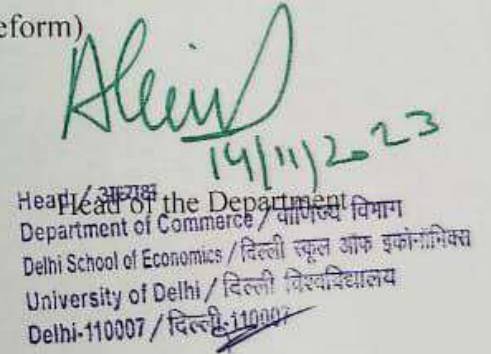 eform)
14/11/2023
Head / अध्यक्ष
Head of the Department
Department of Commerce / वाणिज्य विभाग
Delhi School of Economics / दिल्ली स्कूल ऑफ इकोनॉमिक्स
University of Delhi / दिल्ली विश्वविद्यालय
Delhi-110007 / दिल्ली-110007